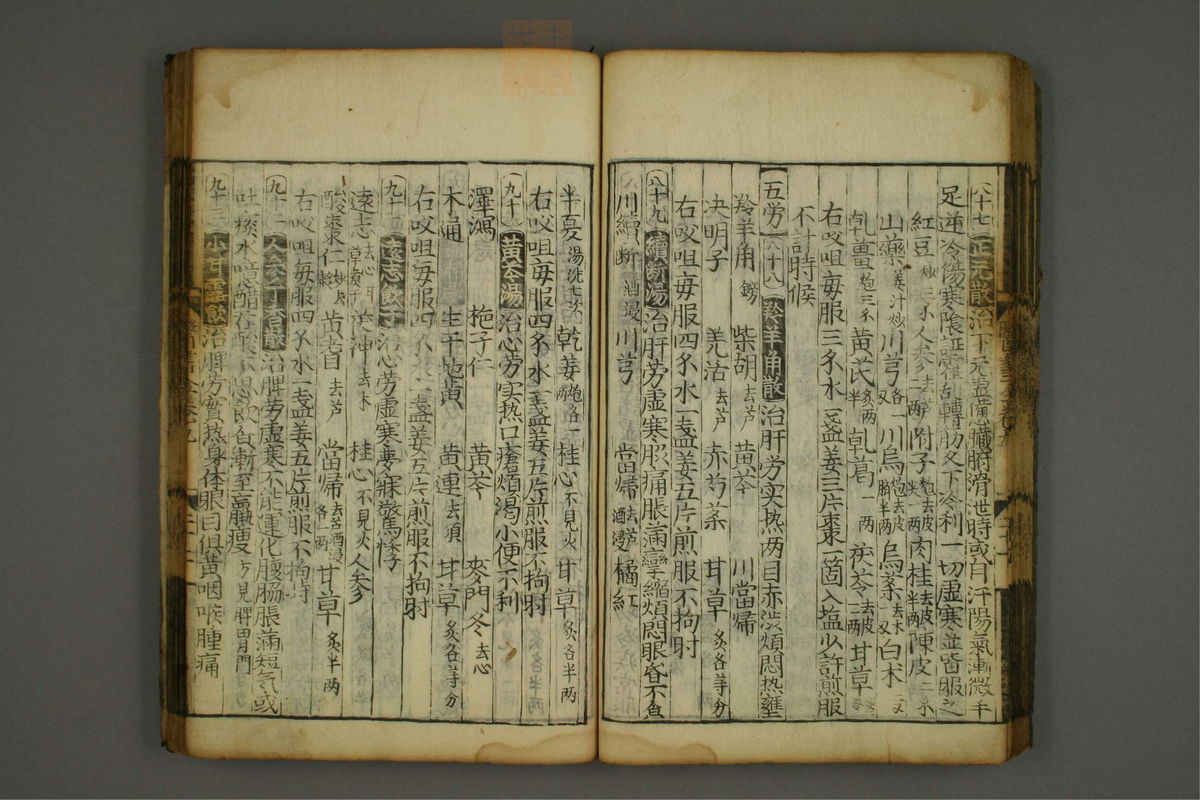 八十七 正元散 治下元虛備急臟腑滑泄時或自汗陽氣漸微手
足逆冷傷寒陰証霍乱轉筋久下冷利一切虛寒並皆服之
紅豆炒三 人參去芦二两 附子炮去皮尖一两 肉桂去皮半两 陳皮二
山藥姜汁炒 川芎各一 川烏炮去皮臍半两 烏藥去木一 白术二
乾薑炮三 黄芪炙一两半 乾葛一两 茯苓去皮二两 甘草
右㕮咀每服三水一盞姜三片棗一箇入塩少許煎服
不計時候
五労 八十八 羚羊角散 治肝労实热两目赤渋煩悶热壅
羚羊角鎊 柴胡去芦 黄芩 川當帰
决明子 羌活去芦 赤芍薬 甘草炙各等分
右㕮咀每服四水一盞姜五片煎服不拘时
八十九 續断湯 治肝労虛寒胀痛脹滿攣縮煩悶眼昏不食
川續断酒浸 川芎 當帰去芦酒浸 橘紅
半夏湯洗七次 乾姜炮各一两 桂心不見火 甘草炙各半两
右㕮咀每服四水一盞姜五片煎服不拘时
九十 黄芩湯 治心労实热口瘡煩渴小便不利
澤瀉 梔子仁 黄芩 麥門冬去心
木通 生干地黄 黄連去須 甘草炙各等分
右㕮咀每服四水一盞姜五片煎服不拘时
九十一 遠志飲子 治心労虛寒夢寐驚悸
遠志去心 茯神去木 桂心不見火 人參
酸棗仁炒 黄芪去芦 當帰去芦酒浸各一两 甘草炙半两
右㕮咀每服四水一盞姜五片煎服不拘时
九十二 人參丁香散 治脾労虛寒不能運化腹脇脹滿短気或
吐痰水噫醋吞酸不思飲食漸至羸瘦方見脾胃門
九十三 小甘露飲 治脾労實热身体眼目俱黄咽喉腫痛